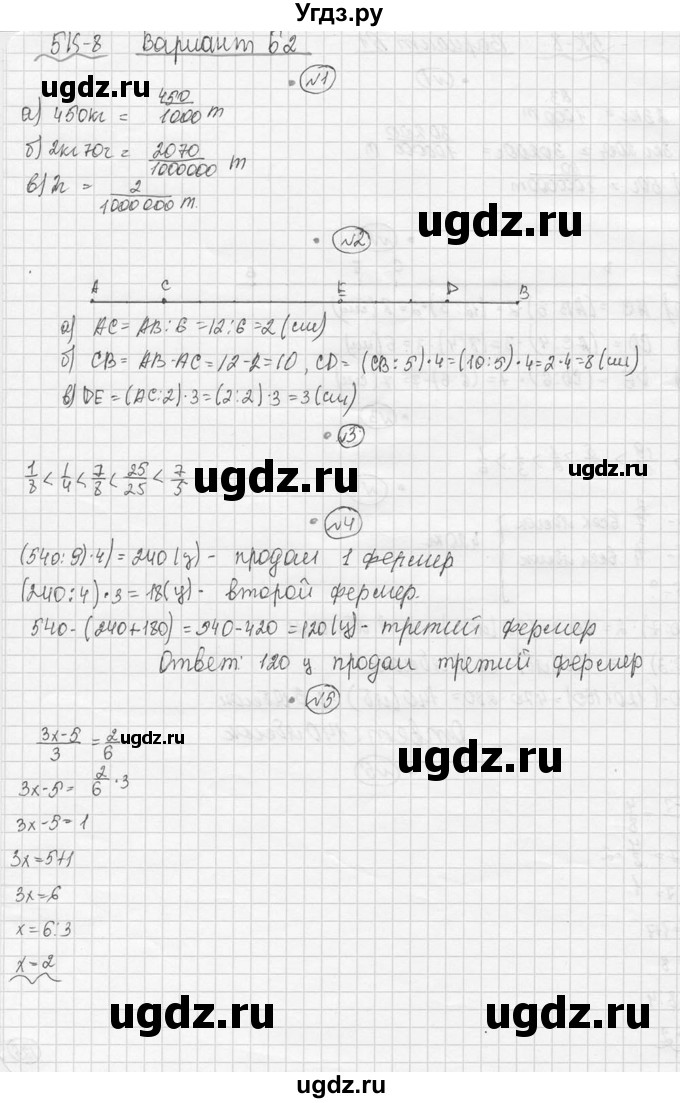 Угдз.ру
5К-8 Вариант Б2
ugdz.ru
№1
а) 450кг = 450/1000 т
б) 2кг 70г = 2070/1000000 т
в) 2г = 2/1000000 т.
ugdz.ru
№2
A C E D B
а) AC = AB : 6 = 12 : 6 = 2 (см)
б) CB = AB - AC = 12 - 2 = 10, CD = (CB : 5) · 4 = (10 : 5) · 4 = 2 · 4 = 8 (см)
в) DE = (AC : 2) · 3 = (2 : 2) · 3 = 3 (см)
№3
1/8 < 1/4 < 7/8 < 25/25 < 7/5
ugdz.ru ugdz.ru
№4
(540 : 9) · 4) = 240 (ц) - продал 1 фермер
(240 : 4) · 3 = 18 (ц) - второй фермер.
540 - (240 + 180) = 540 - 420 = 120 (ц) - третий фермер
Ответ: 120 ц продал третий фермер
№5
3x - 5/3 = 2/6
ugdz.ru ugdz.ru
3x - 5 = 2/6 · 3
3x - 5 = 1
3x = 5 + 1
3x = 6
x = 6 : 3
x = 2
ugdz.ru ugdz.ru
ugdz.ru